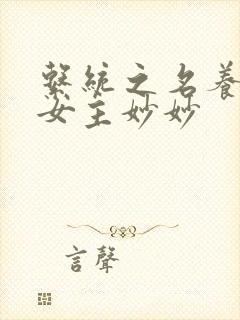 繫統之名養
女主妙妙
言聲